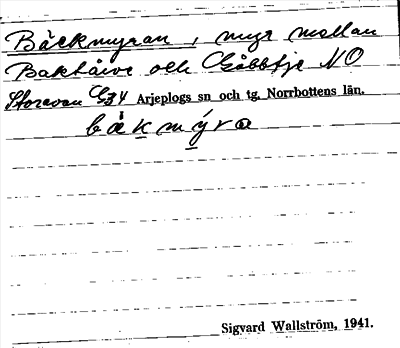 Bäckmyran, myr mellan
Baktåive och Gåbbtje NO
Storavan G34 Arjeplogs sn och tg, Norrbottens län.
båkmýra
Sigvard Wallström, 1941.